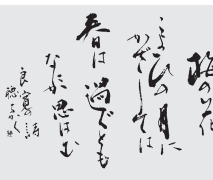 梅の花
こよひの月に
かざしては
春は過ぐとも
なにか思はむ
良寛の詩
聴雪かく